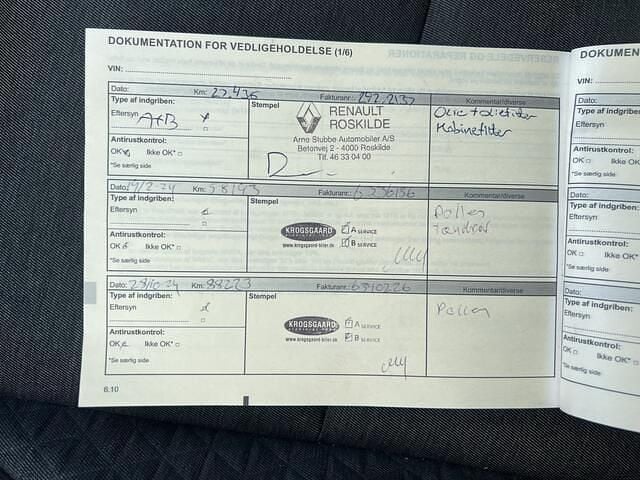 DOKUMENTATION FOR VEDLIGEHOLDELSE (1/6)
VIN:
Dato: Km: 22,436 Fakturanr.: 142,2137 Kommentar/diverse
Type af indgriben:
Eftersyn A+B
Antirustkontrol:
OK Ikke OK*
*Se særlig side
Stempel
RENAULT
ROSKILDE
Arno Stubbe Automobiler A/S
Betonvej 2 - 4000 Roskilde
Tlf. 46 33 04 00
Olie + oliefilter
Kabinefilter
Dato: 19/2-24 Km: 58143 Fakturanr.: Kommentar/diverse
Type af indgriben:
Eftersyn
Antirustkontrol:
OK Ikke OK*
*Se særlig side
Stempel
KROGSGAARD
www.krogsgaard-biler.dk
A SERVICE
B SERVICE
Pollen
tændrør
Dato: 28/10-24 Km: 88223 Fakturanr.: 6310226 Kommentar/diverse
Type af indgriben:
Eftersyn
Antirustkontrol:
OK Ikke OK*
*Se særlig side
Stempel
KROGSGAARD
www.krogsgaard-biler.dk
A SERVICE
B SERVICE
Pollen
6.10
DOKUMEN
VIN:
Dato:
Type af indgribe
Eftersyn
Antirustkontrol:
OK Ikke OK
*Se særlig side
Dato:
Type af indgri
Eftersyn
Antirustkontro
OK Ikke O
*Se særlig side
Dato:
Type af indgr
Eftersyn
Antirustkont
OK Ikke
*Se særlig side